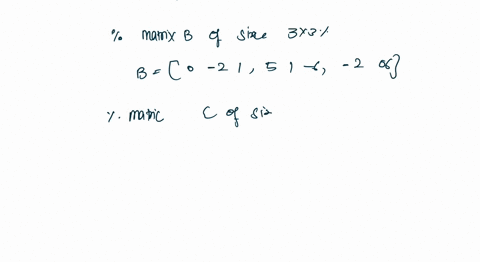 % matrix B of size 3x3 %
B = [ 0 -2 1 , 5 1 -6, -2 06]
%. matric C of siz